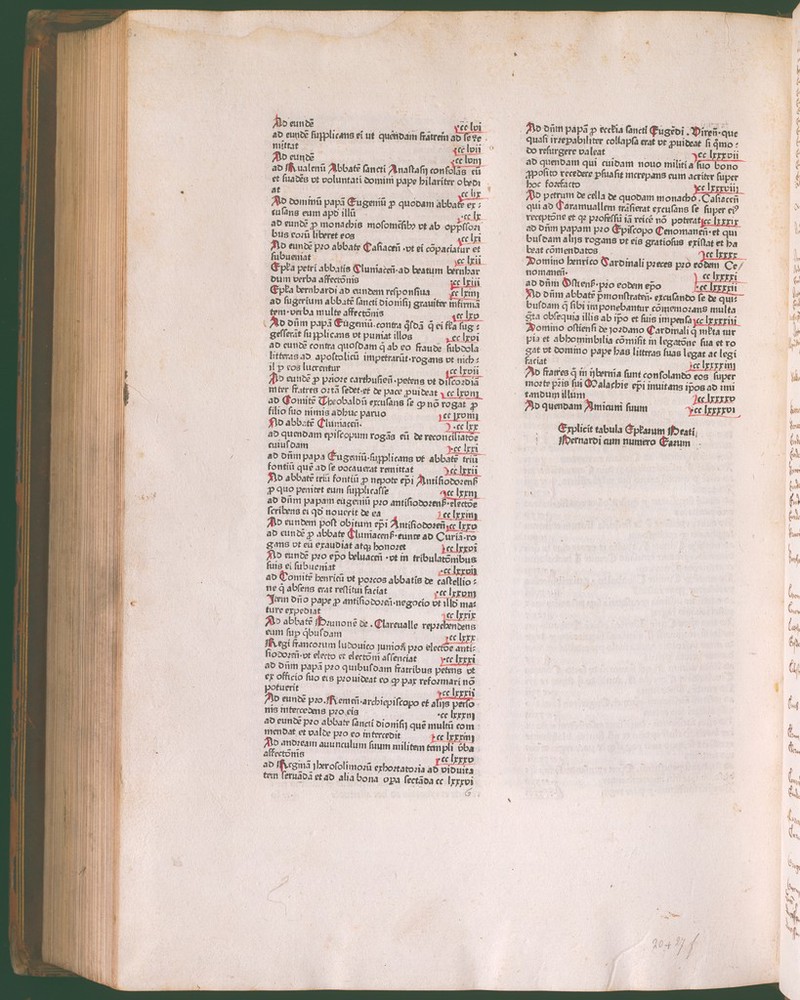 Ad eundē
cc lvi
ad eundē supplicans ei ut quēdam fratrem ad se re
mittat
cc lvii
Ad eundē
cc lviii
ad Rualenū Abbatē sancti Anastasij consolās eū
et suadēs vt voluntati domini pape hilariter obedi
at
cc lix
Ad dominū papā Eugeniū ꝓ quodam abbate ex⸗
cusans eum apd illū
cc lx
ad eundē ꝓ monachis
vt ab oppssori
bus eorū liberet eos
cc lxi
Ad eundē pro abbate Casiacen̄ ·vt ei cōpaciatur et
subueniat
cc lxii
Epła petri abbatis Cluniacen̄·ad beatum bernhar
dum verba affectōnis
cc lxiii
Epła bernhardi ad eundem responsiua
cc lxiiij
ad sugerium abbatē sancti dionisij grauiter infirmā
tem·verba multe affectōnis
cc lxv
Ad dn̄m papā Eugeniū·contra q̄sdā q̄ ei fła sug⸗
gesserāt supplicans vt puniat illos
cc lxvi
ad eundē contra quosdam q̄ ab eo fraude subdola
litteras ad apostolicū impetrarūt·rogans vt nich⸗
il ꝑ eos lucrentur
cc lxvii
Ad eundē ꝓ priore carthusien̄·petens vt discordia
inter fratres ortā sedet·et de pace ꝓuideat
cc lxviij
ad Comitē Theobaldū excusans se ꝙ nō rogat ꝓ
filio suo nimis adhuc paruo
cc lxviiij
Ad abbatē Cluniacen̄·
cc lxx
ad quendam episcopum rogās eū de reconciliatōe
cuiusdam
cc lxxi
ad dn̄m papa Eugeniū·supplicans vt abbatē triū
fontiū quē ad se vocauerat remittat
cc lxxii
Ad abbatē triū fontiū ꝓ nepote ep̄i Antisiodorens̄
ꝓ quo penitet eum supplicasse
cc lxxiij
ad dn̄m papam eugeniū pro antisiodorens̄·electōe
scribens ei qd nouerit de ea
cc lxxiiij
Ad eundem post obitum ep̄i Antisiodoren̄
cc lxxv
ad eundē ꝓ abbate Cluniacens̄·eunte ad Curiā·ro
gans vt eū exaudiat atqꝫ honoret
cc lxxvi
Ad eundē pro ep̄o beluacen̄ ·vt in tribulatōnibus
suis ei subueniat
cc lxxvij
ad Comitē henricū vt porcos abbatis de castellio⸗
ne q̄ absens erat restitui faciat
cc lxxviij
Item dn̄o pape ꝓ antisiodoren̄·negocio vt illd ma⸗
ture expediat
cc lxxix
Ad abbatē Brunonē de · Clareualle reprehendens
eum sup q̄busdam
cc lxxx
Regi francorum ludouico juniori pro electōe anti⸗
siodoren̄·vt electo et electōni assenciat
cc lxxxi
ad dn̄m papā pro quibusdam fratribus petens vt
ex officio suo eis prouideat eo ꝙ pax reformari nō
potuerit
cc lxxxii
Ad eundē pro·Remen̄·archiepiscopo et alijs perso
nis intercedens pro eis
cc lxxxiij
ad eundē pro abbate sancti dionisij quē multū com
mendat et valde pro eo intercedit
cc lxxxiiij
Ad andream auunculum suum militem templi vba
affectōnis
cc lxxxv
ad Reginā jherosolimorū exhortatoria ad viduita
tem seruādā et ad alia bona opa sectāda cc lxxxvi
Ad dn̄m papā ꝓ eccłia sancti Eugēdi · Jiren̄·que
quasi irrepabiliter collapsa erat vt ꝓuideat si q̄mo⸗
do resurgere valeat
cc lxxxvii
ad quendam qui cuidam nouo militi a suo bono
ꝓposito recedere psuasit increpans eum acriter super
hoc forefacto
cc lxxxviij
Ad petrum de cella de quodam monacho·Casiacen̄
qui ad Caramuallem trāsierat excusans se super ei⁹
receptōne et qꝛ professū iā reicē nō poterat
cc lxxxix
ad dn̄m papam pro Episcopo Cenomanen̄·et qui
busdam alijs rogans vt eis gratiosus existat et ha
beat cōmendatos
cc lxxxx
Domino henrico Cardinali preces pro eodem Ce/
nomanen̄·
cc lxxxxi
ad dn̄m Ostiens̄·pro eodem ep̄o
cc lxxxxii
Ad dn̄m abbatē pmonstraten̄· excusando se de qui⸗
busdam q̄ sibi imponebantur cōmemorans multa
gr̄ta obsequia illis ab ip̄o et suis impensa
cc lxxxxiii
Domino ostiensi de jordano Cardinali q̄ młta tur
pia et abhominibilia cōmisit in legatōne sua et ro
gat vt domino pape has litteras suas legat ac legi
faciat
cc lxxxxiiij
Ad fratres q̄ in ybernia sunt consolando eos super
morte pr̄is sui Malachie ep̄i inuitans ip̄os ad imi
tandum illum
cc lxxxxv
Ad quendam Amicum suum
cc lxxxxvi
Explicit tabula Epłarum Beati
Bernardi cum numero Earum
20+27 f